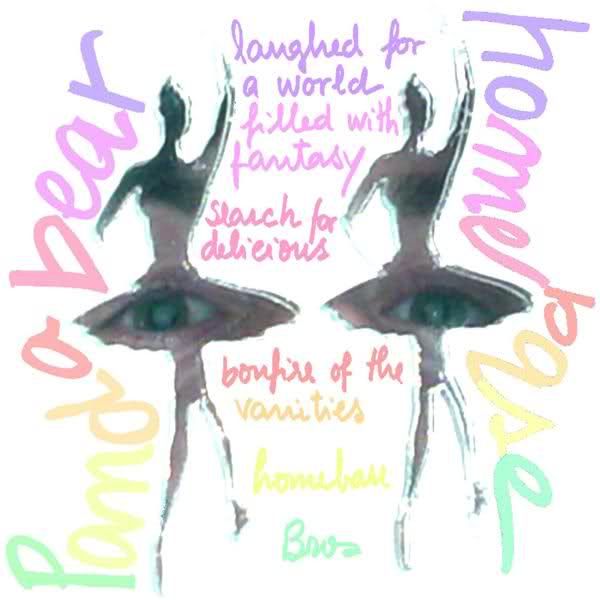 Panda bear
laughed for
a world
filled with
fantasy
search for
delicious
bonfire of the
vanities
homebase
Bros
homebase